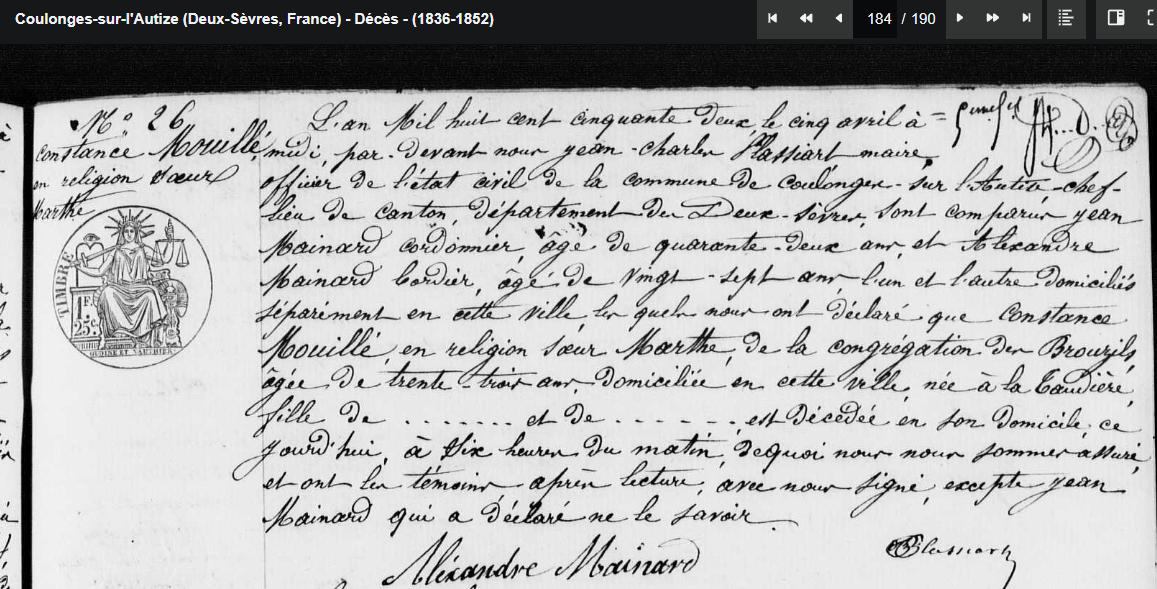 Coulonges-sur-l'Autize (Deux-Sèvres, France) - Décès - (1836-1852)
184 / 190
N.º 26
Constance Mouillé,
en religion Sœur
Marthe
TIMBRE
1F.
25c
L'an Mil huit cent cinquante deux, le cinq avril à
midi, par-devant nous jean-charles maire,
officier de l'état civil de la commune de Coulonges-sur l'Autize-chef-
lieu de canton, département des Deux-Sèvres, sont comparus jean
Mainard cordonnier, âgé de quarante-deux ans, et Alexandre
Mainard Cordier, âgé de vingt-sept ans, l'un et l'autre domiciliés
séparément en cette ville, les quels nous ont déclaré que Constance
Mouillé, en religion sœur Marthe, de la congrégation des Brouzils,
âgée de trente trois ans, domiciliée en cette ville, née à la
fille de ........ et de ........, est décédée en son domicile, ce
jourd'hui, à six heures du matin, dequoi nous nous sommes assuré,
et ont les témoins après lecture, avec nous signé, excepté jean
Mainard qui a déclaré ne le savoir.
Alexandre Mainard